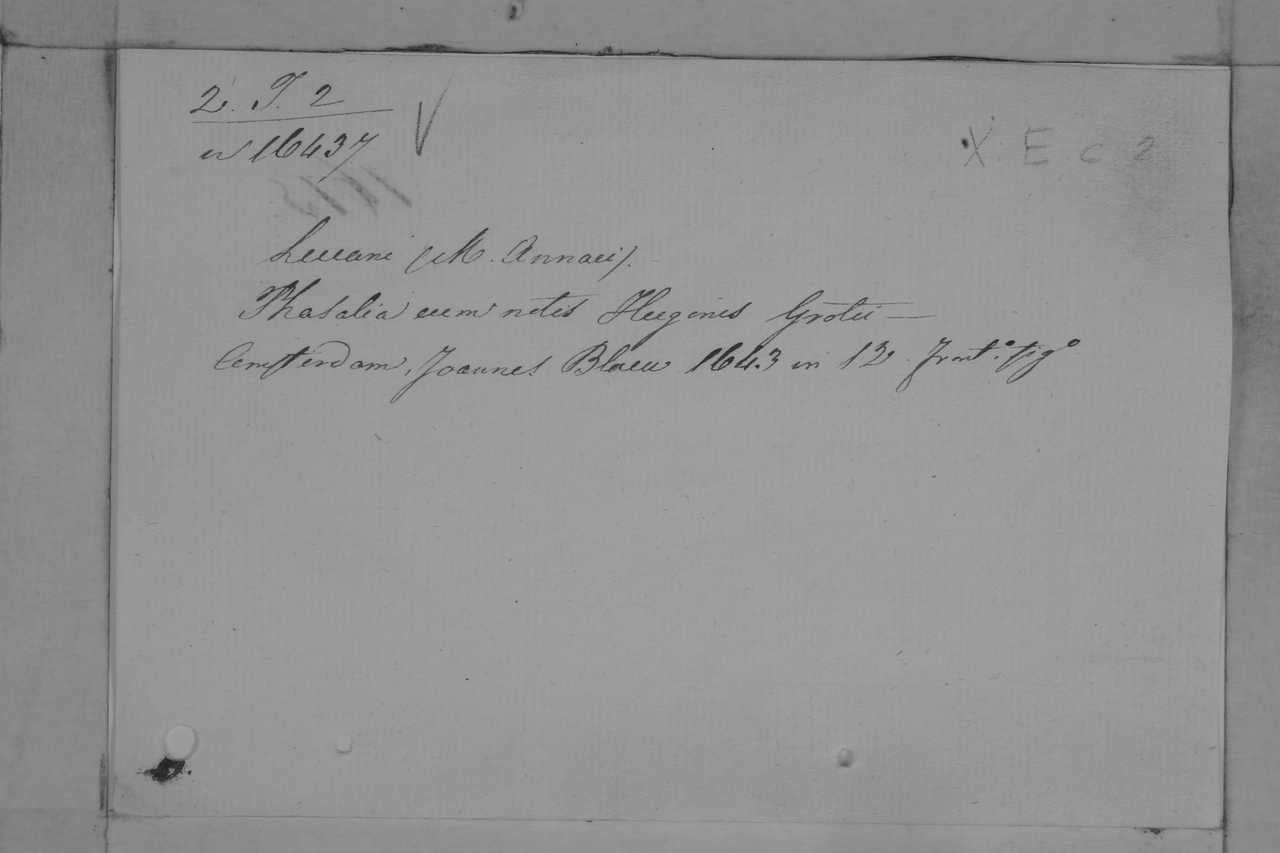 2. T. 2
n 16437
X E c 2
Lucani (M. Annaei).
Phasalia cum notis Hugonis Grotii —
Amsterdam, Joannes Blaeu 1643 in 12 front.° fig°